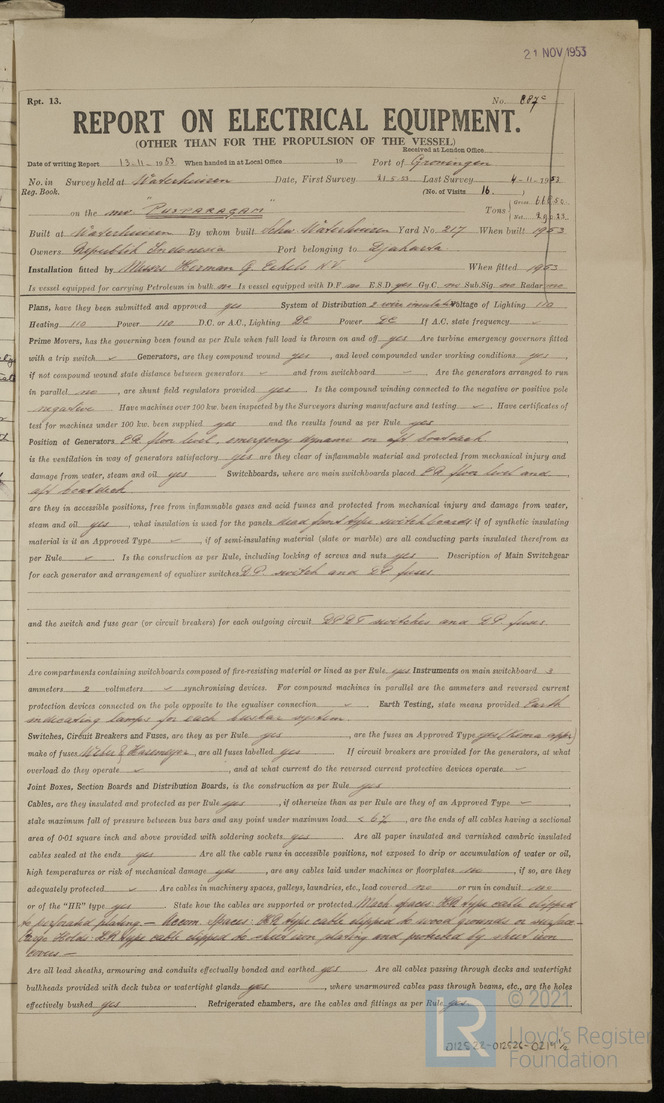 21 NOV 1953
Rpt. 13. No. 887c
REPORT ON ELECTRICAL EQUIPMENT.
(OTHER THAN FOR THE PROPULSION OF THE VESSEL)
Received at London Office
Date of writing Report 13-11-1953 When handed in at Local Office 19 Port of Groningen
No. in Survey held at Waterhuizen Date, First Survey 21.5.53 Last Survey 4-11-1953
Reg. Book. (No. of Visits 16 )
on the mv. "PUSPARAGAM" Tons
Built at Waterhuizen By whom built Schw. Waterhuizen Yard No. 217 When built 1953
Owners Republik Indonesia Port belonging to Djakarta
Installation fitted by Messrs Herman G. Eekels N.V. When fitted 1953
Is vessel equipped for carrying Petroleum in bulk no Is vessel equipped with D.F. no E.S.D. yes Gy.C. no Sub.Sig. no Radar no
Plans, have they been submitted and approved yes System of Distribution 2 wire insulated Voltage of Lighting 110
Heating 110 Power 110 D.C. or A.C., Lighting DC Power DC If A.C. state frequency
Prime Movers, has the governing been found as per Rule when full load is thrown on and off yes Are turbine emergency governors fitted
with a trip switch Generators, are they compound wound yes , and level compounded under working conditions yes ,
if not compound wound state distance between generators and from switchboard . Are the generators arranged to run
in parallel no , are shunt field regulators provided yes Is the compound winding connected to the negative or positive pole
negative . Have machines over 100 kw. been inspected by the Surveyors during manufacture and testing . Have certificates of
test for machines under 100 kw. been supplied yes and the results found as per Rule yes
Position of Generators ER floor level, emergency dynamo on aft boatdeck ,
is the ventilation in way of generators satisfactory yes are they clear of inflammable material and protected from mechanical injury and
damage from water, steam and oil yes Switchboards, where are main switchboards placed ER floor level and
aft boatdeck
are they in accessible positions, free from inflammable gases and acid fumes and protected from mechanical injury and damage from water,
steam and oil yes , what insulation is used for the panels dead front type switchboards if of synthetic insulating
material is it an Approved Type , if of semi-insulating material (slate or marble) are all conducting parts insulated therefrom as
per Rule . Is the construction as per Rule, including locking of screws and nuts yes . Description of Main Switchgear
for each generator and arrangement of equaliser switches D.P. switch and D.P. fuses
and the switch and fuse gear (or circuit breakers) for each outgoing circuit DPDT switches and D.P. fuses
Are compartments containing switchboards composed of fire-resisting material or lined as per Rule yes Instruments on main switchboard 3
ammeters 2 voltmeters synchronising devices. For compound machines in parallel are the ammeters and reversed current
protection devices connected on the pole opposite to the equaliser connection . Earth Testing, state means provided Earth
indicating lamps for each busbar system.
Switches, Circuit Breakers and Fuses, are they as per Rule yes , are the fuses an Approved Type yes (Kema appr)
make of fuses Weber & Hazemeyer , are all fuses labelled yes If circuit breakers are provided for the generators, at what
overload do they operate , and at what current do the reversed current protective devices operate
Joint Boxes, Section Boards and Distribution Boards, is the construction as per Rule yes
Cables, are they insulated and protected as per Rule yes , if otherwise than as per Rule are they of an Approved Type ,
state maximum fall of pressure between bus bars and any point under maximum load < 6% , are the ends of all cables having a sectional
area of 0·01 square inch and above provided with soldering sockets yes . Are all paper insulated and varnished cambric insulated
cables sealed at the ends yes Are all the cable runs in accessible positions, not exposed to drip or accumulation of water or oil,
high temperatures or risk of mechanical damage yes , are any cables laid under machines or floorplates no , if so, are they
adequately protected . Are cables in machinery spaces, galleys, laundries, etc., lead covered no or run in conduit no
or of the "HR" type yes . State how the cables are supported or protected Mach. spaces HR type cable clipped
to perforated plating – Accom. Spaces: HR type cable clipped to wood grounds or surface –
Cargo Holds: HR type cable clipped to sheet iron plating and protected by sheet iron
covers –
Are all lead sheaths, armouring and conduits effectually bonded and earthed yes . Are all cables passing through decks and watertight
bulkheads provided with deck tubes or watertight glands yes , where unarmoured cables pass through beams, etc., are the holes
effectively bushed yes . Refrigerated chambers, are the cables and fittings as per Rule yes.
© 2021
LR
Lloyd's Register
Foundation
012522-012526-0219 1/2